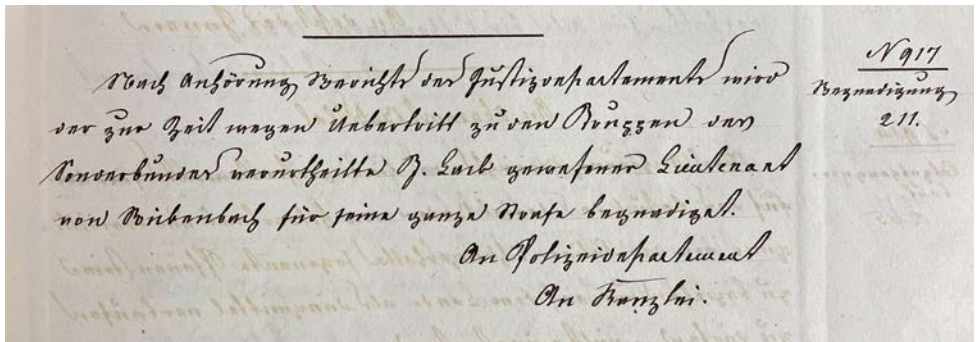 Nach Anhörung Berichts des Justizdepartements wird
der zur Zeit wegen Uebertritt zu den Truppen des
Sonderbundes verurtheilte J. Laib gewesener Lieutenant
von Bibenbach für seine ganze Strafe begnadiget.
An Polizeidepartement
An Kanzlei.
N 917
Begnadigung
211.